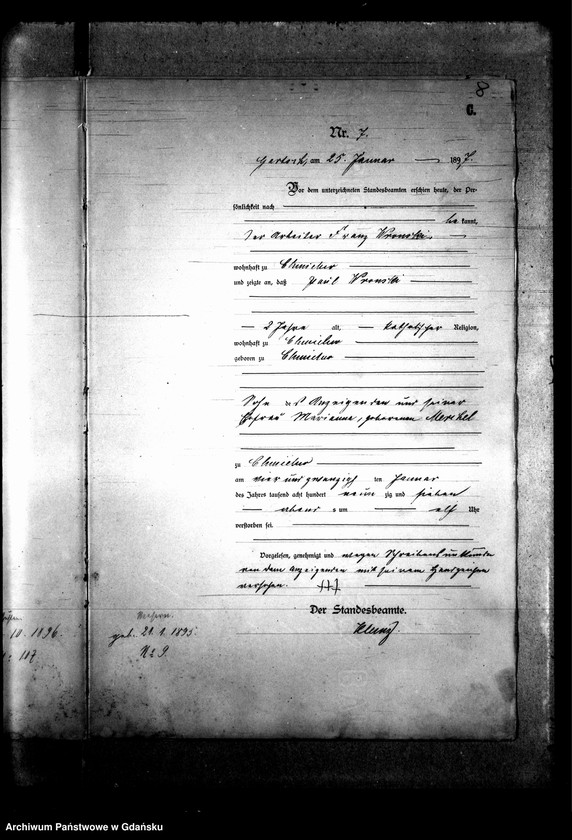 8
C.
Nr. 7.
am 25. Januar 1897.
Vor dem unterzeichneten Standesbeamten erschien heute, der Per-
sönlichkeit nach
be kannt,
der Arbeiter Franz Wronski
wohnhaft zu Chmielno
und zeigte an, daß Paul Wronski
2 Jahre alt, katholischer Religion,
wohnhaft zu Chmielno
geboren zu Chmielno
Sohn des Anzeigenden und seiner
Ehefrau Marianna, geborenen Merchel
zu Chmielno
am vier und zwanzigsten Januar
des Jahrs tausend acht hundert neun zig und sieben
abends um elf Uhr
verstorben sei.
Vorgelesen, genehmigt und wegen Schreibensunkunde
von dem Anzeigenden mit seinem Handzeichen
versehen. +++
Der Standesbeamte.
10. 1896.
117
geb. 21.1.1895.
N 2 9.
Archiwum Państwowe w Gdańsku